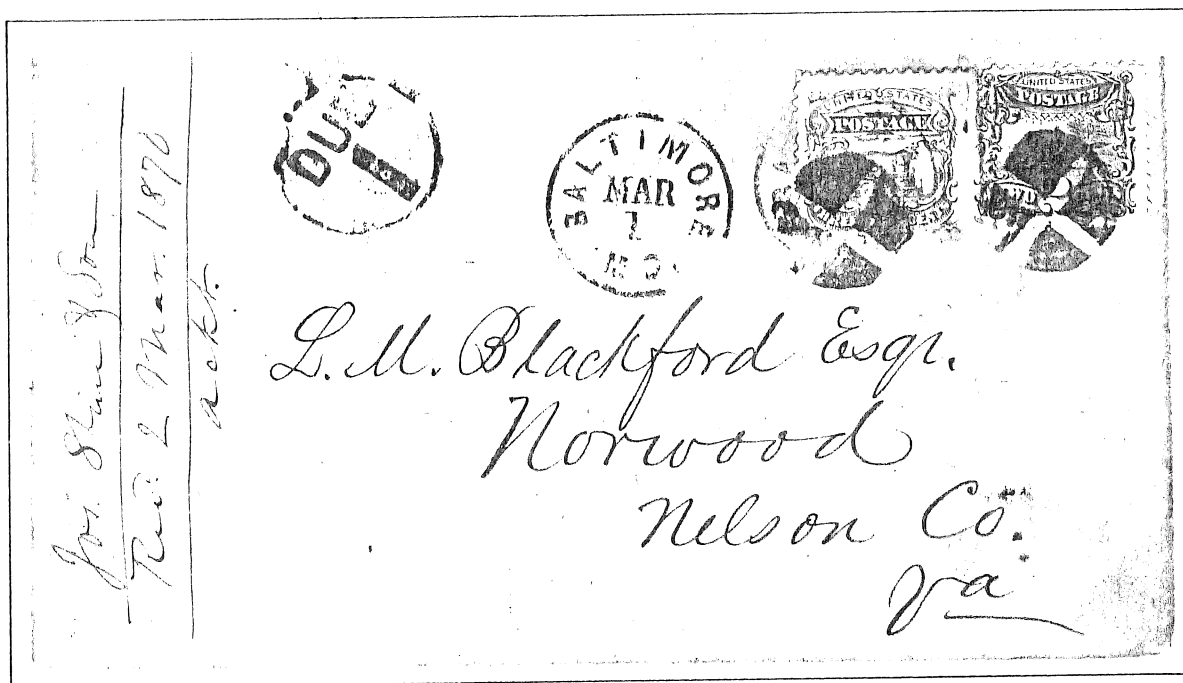 Rec'd. 2 Mar. 1870
ackt.
DUE 1
BALTIMORE
MAR
1
MD.
UNITED STATES
POSTAGE
UNITED STATES
POSTAGE
L. M. Blackford Esqr.
Norwood
Nelson Co.
Va